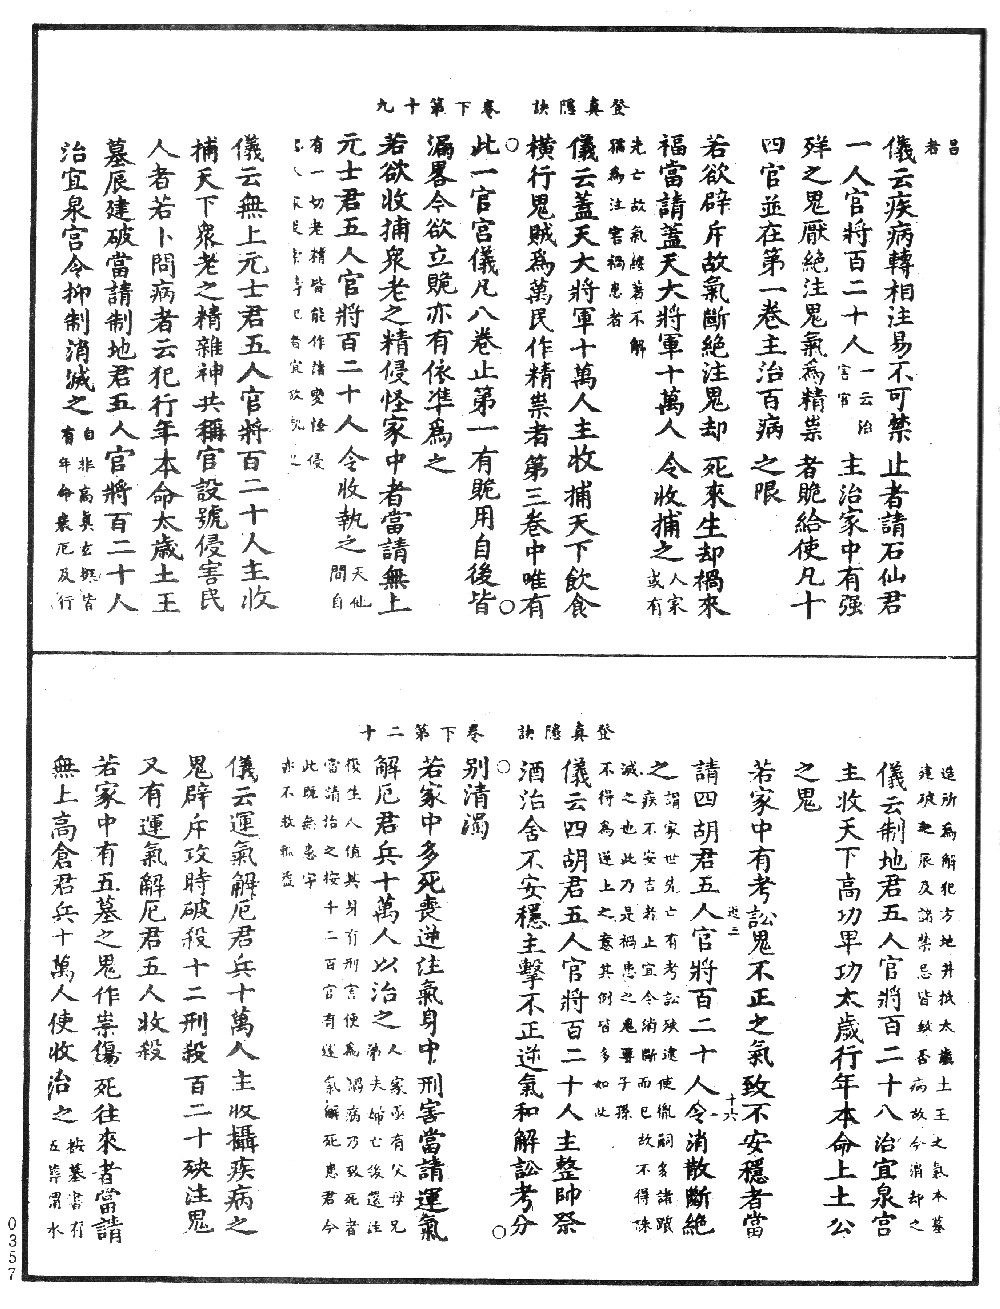 登真隱訣　卷下第十九
呂
者
儀云疾病轉相注易不可禁止者請石仙君
一人官將百二十人一云治害官主治家中有强
殃之鬼厭絕注鬼氣為精祟者賧給使凡十
四官並在第一卷主治百病之限
若欲辟斥故氣斷絕注鬼却死來生却禍來
福當請蓋天大將軍十萬人令收捕之人家或有
先亡故氣纏著不解
猶為注害禍患者
儀云蓋天大將軍十萬人主收捕天下飲食
橫行鬼賊為萬民作精祟者第三卷中唯有
此一官宮儀凡八卷止第一有賧用自後皆
漏畧今欲立賧亦有依准為之
若欲收捕眾老之精侵怪家中者當請無上
元士君五人官將百二十人令收執之天仙問自
有一切老精皆能作諸變怪侵
儀云無上元士君五人官將百二十人主收
捕天下眾老之精雜神共稱官設號侵害民
人者若卜問病者云犯行年本命太歲土王
墓辰建破當請制地君五人官將百二十人
治宜泉宮令抑制消滅之自非高真玄挺皆有年命衰厄及行
登真隱訣　卷下第二十
造所為解犯方地并抵太歲土王之氣本墓
建破之辰及諸禁忌皆致否病故今消却之
儀云制地君五人官將百二十八治宜泉宮
主收天下高功卑功太歲行年本命上土公
之鬼
若家中有考訟鬼不正之氣致不安穩者當
請四胡君五人官將百二十人令消散斷絕
之謂家世先亡有考訟殃逮使胤嗣多諸疾不安吉者止宜令斷而已故不得誅
滅之也此乃是禍患之鬼尊子孫
不得為逆上之意其例皆多如此
儀云四胡君五人官將百二十人主整帥祭
酒治舍不安穩主擊不正逆氣和解訟考分
别清濁
若家中多死喪逆注氣身中刑害當請運氣
解厄君兵十萬人以治之人家亟有父母兄弟夫婦亡後還注
復生人值其身有刑害便為禍病乃致死者
當請治之按千二百官有運氣解死患君今
此既無患字
亦不敢輒益
儀云運氣解厄君兵十萬人主收攝疾病之
鬼辟斥攻時破殺十二刑殺百二十殃注鬼
又有運氣解厄君五人收殺
若家中有五墓之鬼作祟傷死往來者當請
無上高倉君兵十萬人使收治之按墓書有五葬謂水
0357